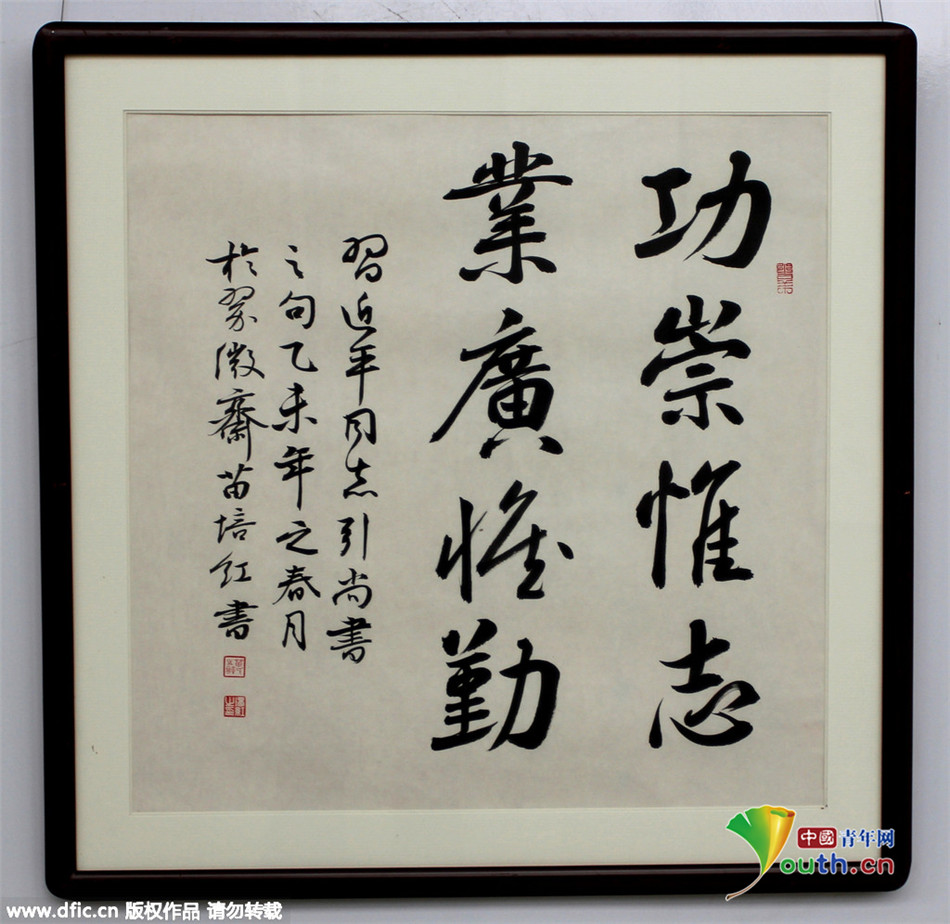 功崇惟志
業廣惟勤
習近平同志引尚書
之句乙未年之春月
於翠微齋苗培紅書
中國青年网
Youth.cn
www.dfic.cn 版权作品 请勿转载